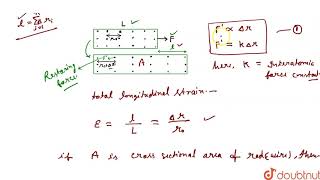 L
l = Σ rᵢ
r₀
F
l
Restoring
force
A
F' ∝ Δr
F' = kΔr
here, K = Interatomic
force constant
total longitudinal strain
ε = l/L = Δr/r₀
if A is cross sectional area of rod(wire), then
doubtnut